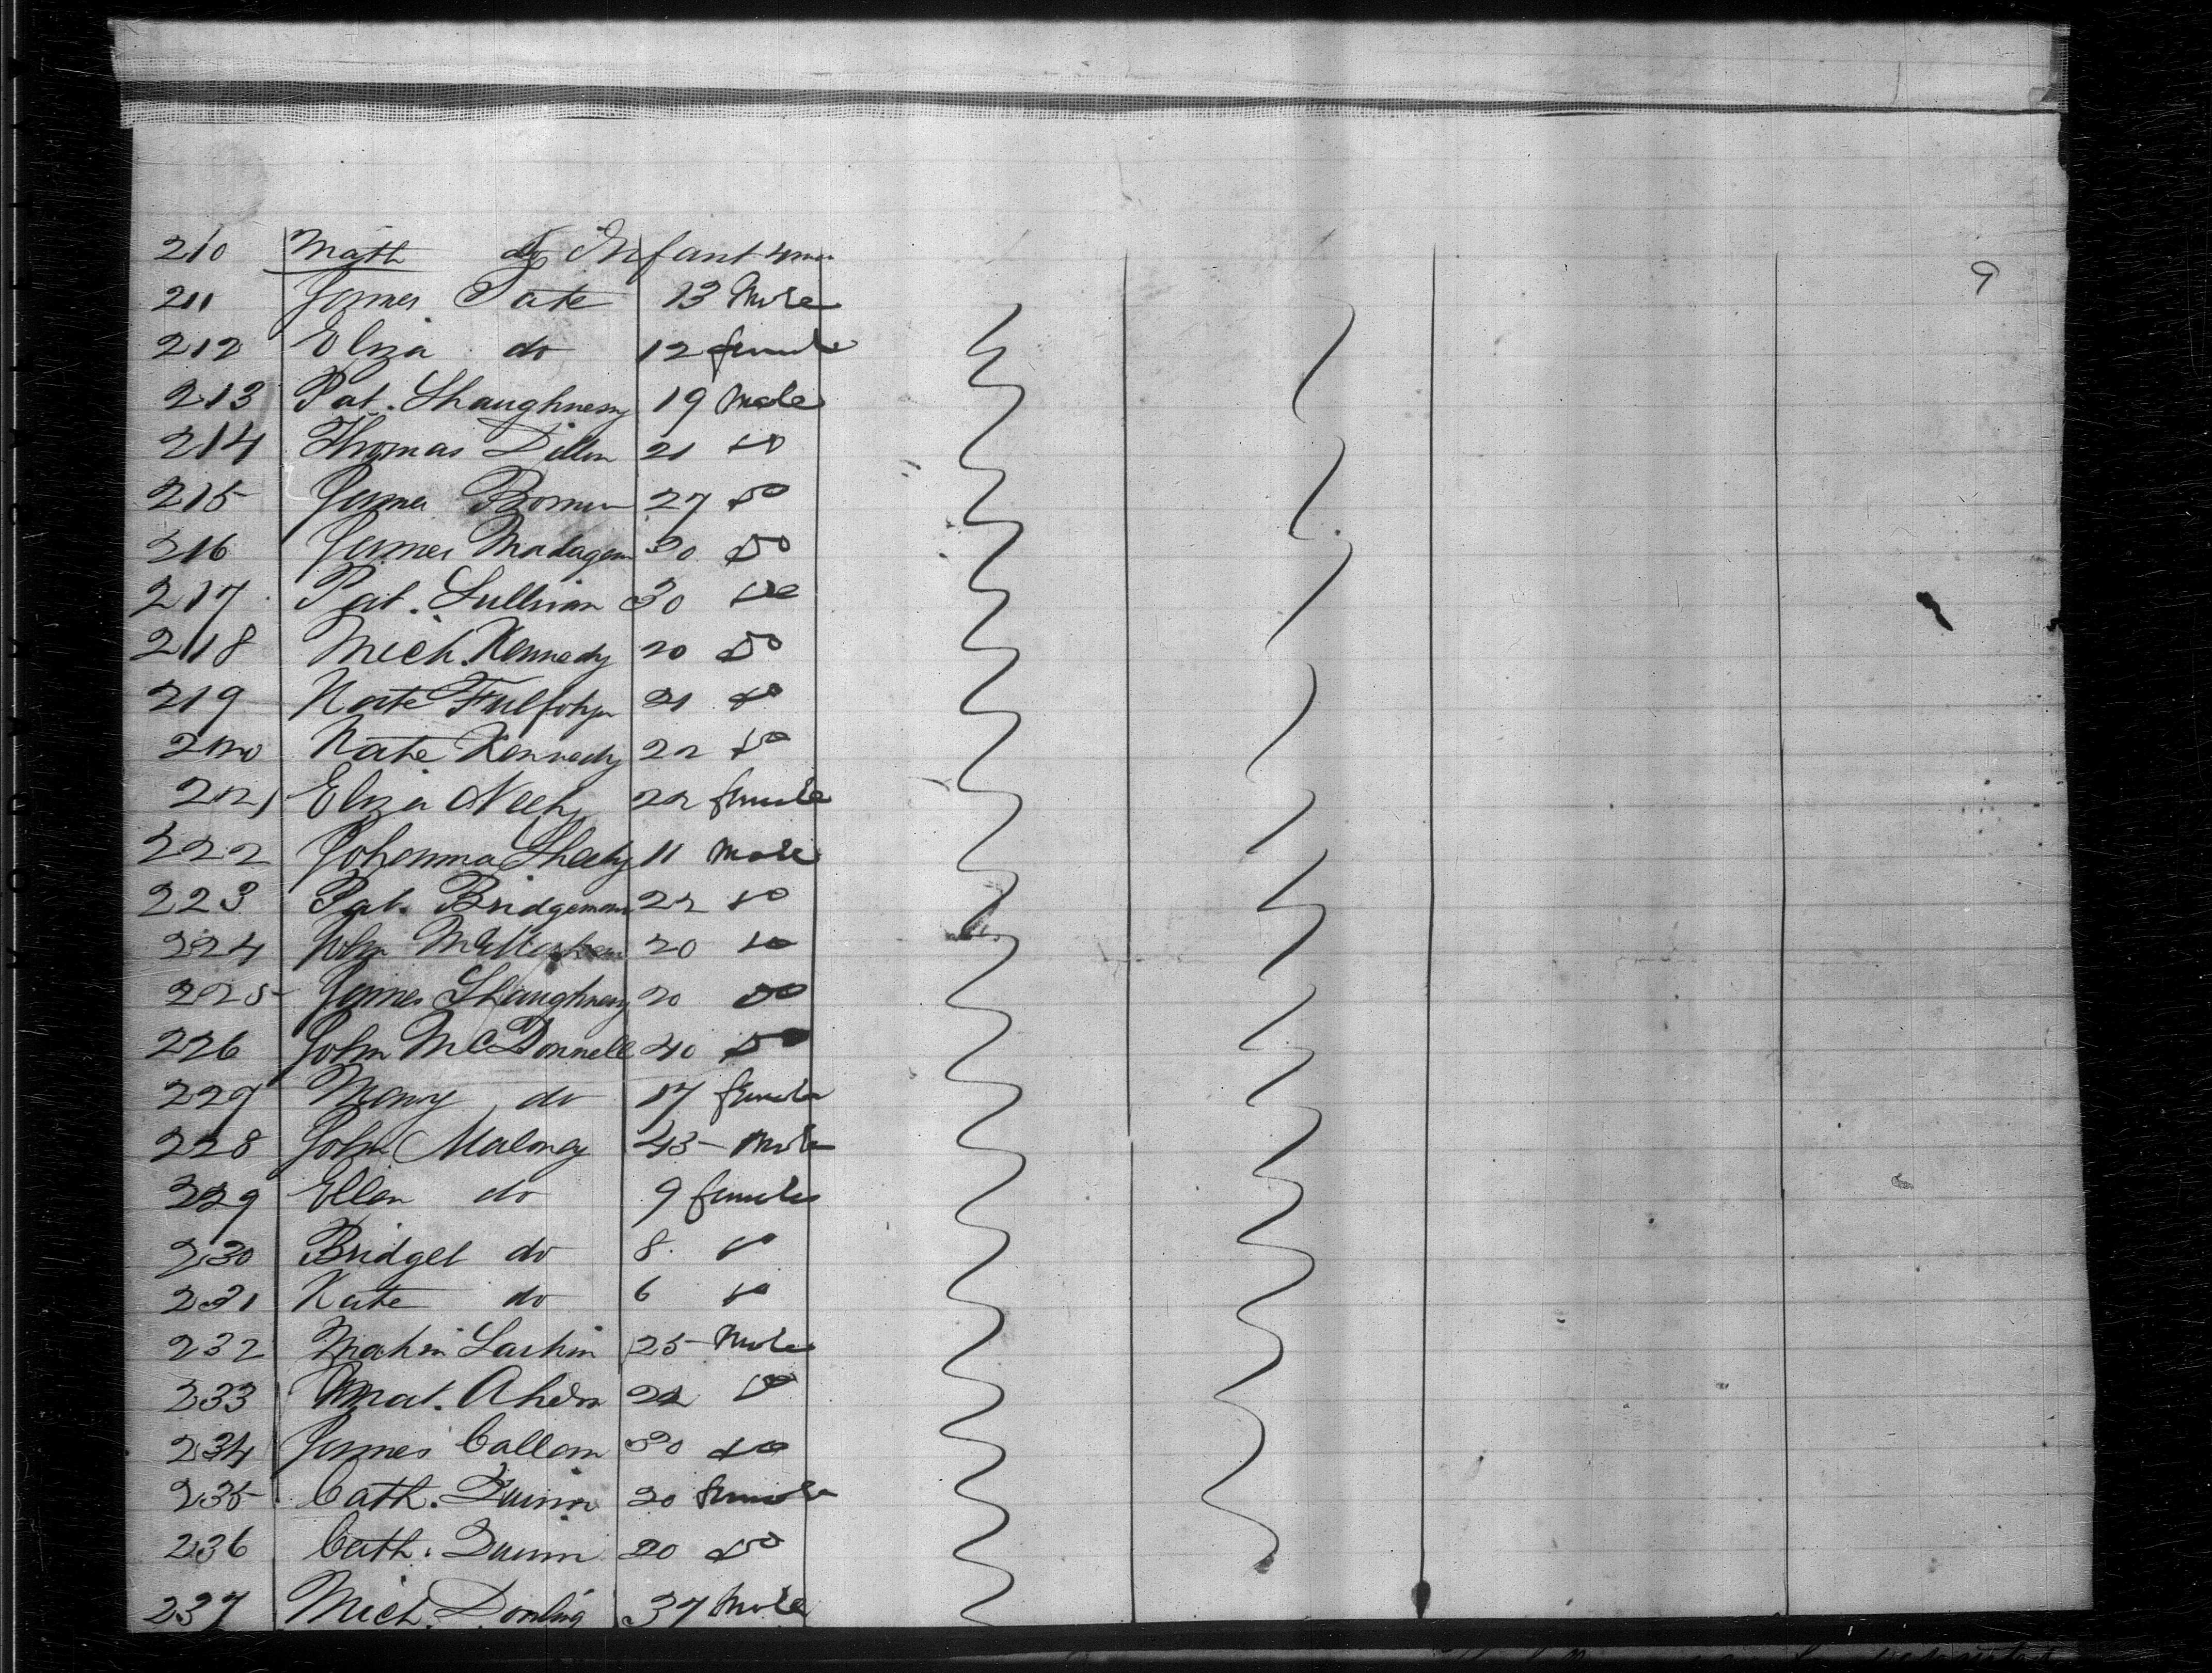 9
210 Math do Infant 4 mos
211 James Tate 13 Male
212 Eliza do 12 female
213 Pat. Shaughnessy 19 Male
214 Thomas Dillon 21 do
215 James 27 do
216 James Madagan 30 do
217 Pat. Sullivan 30 do
218 Mich. Kennedy 20 do
219 Kate 21 do
220 Kate Kennedy 22 do
221 Eliza 22 female
222 Johanna Sheehy 11 Male
223 Pat. Bridgeman 22 do
224 John 20 do
225 James Shaughnessy 20 do
226 John McDonnell 40 do
229 Mary do 17 female
228 John Maloney 43 Male
229 Ellen do 9 female
230 Bridget do 8 do
231 Kate do 6 do
232 Larkin 25 Male
233 Mat. Ahern 22 do
234 James Callan 30 do
235 Cath. Quinn 20 female
236 Cath. Quinn 20 do
237 Mich. Dowling 37 Male